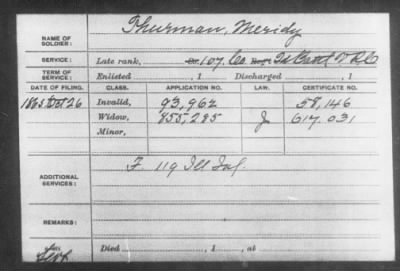 NAME OF SOLDIER: Thurman, Meridy
SERVICE: Late rank, Co. 107, Co. Regt 2d Batt V R C
TERM OF SERVICE: Enlisted , 1 Discharged , 1
DATE OF FILING. CLASS. APPLICATION NO. LAW. CERTIFICATE NO.
1865 Oct 26 Invalid, 93,962 58,146
Widow, 855,285 617 031
Minor,
ADDITIONAL SERVICES: F. 119 Ill Inf.
REMARKS:
Died , 1 , at